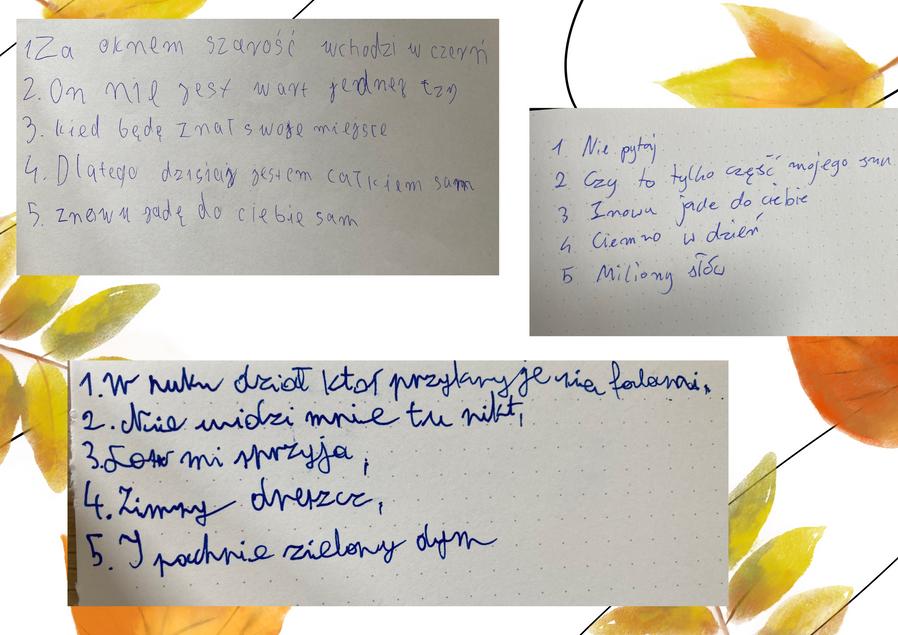 1 Za oknem szarość wchodzi w czerń
2. On nie jest wart jednej łzy
3. kied będę znał swoje miejsce
4. Dlatego dzisiaj jestem całkiem sam
5. znowu jadę do ciebie sam
1 Nie pytaj
2 Czy to tylko część mojego snu
3 Znowu jade do ciebie
4 Ciemno w dzień
5 Miliony słów
1. W huku dział ktoś przykryje się falami,
2. Nie widzi mnie tu nikt,
3. Los mi sprzyja,
4. Zimny dreszcz,
5. I pachnie zielony dym